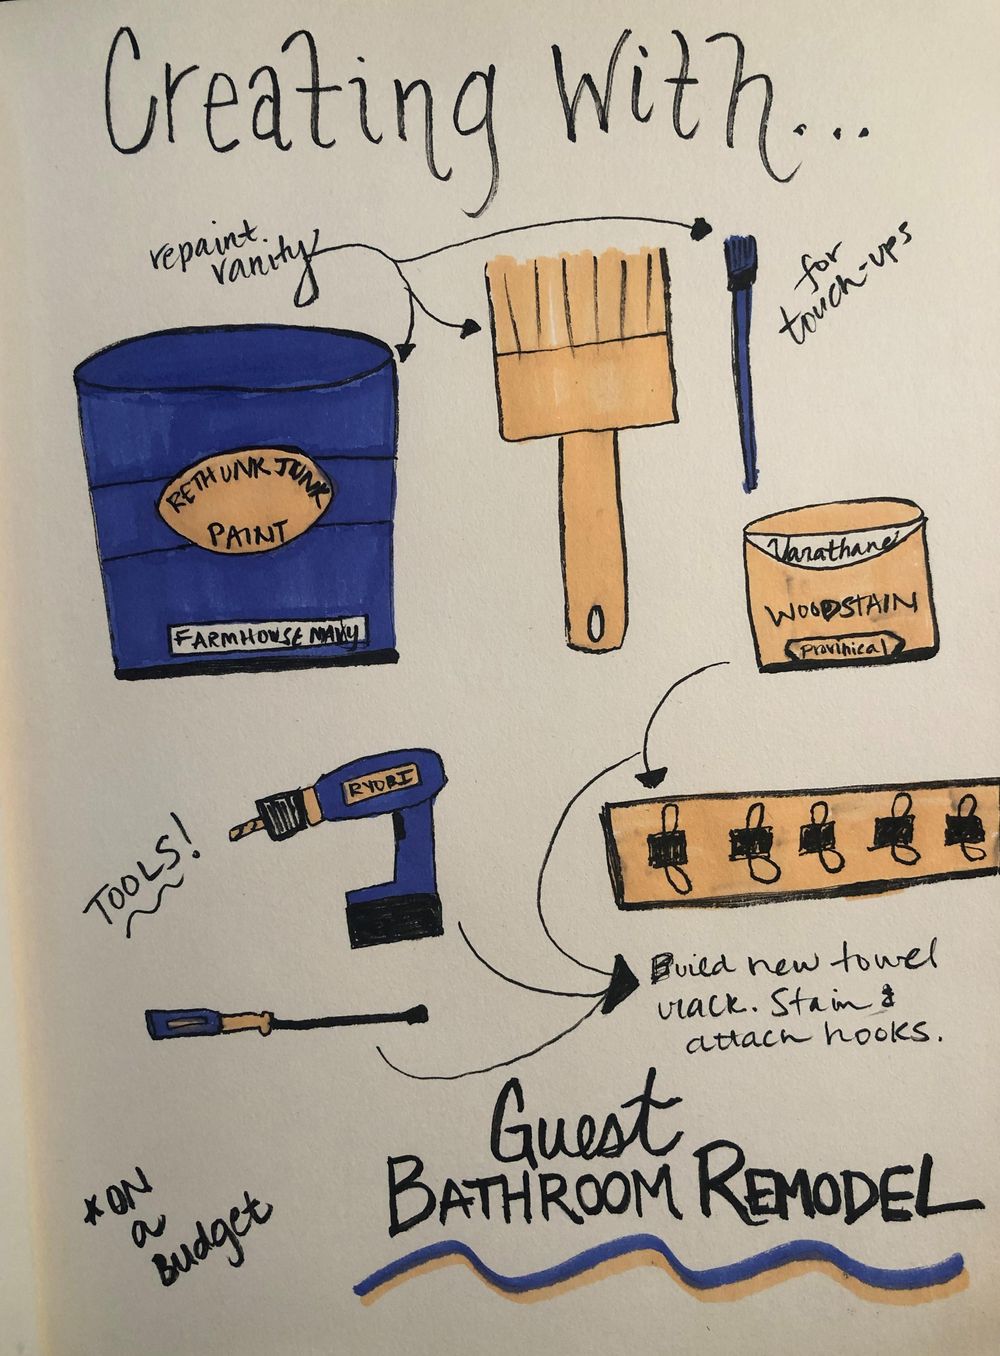 Creating With...
repaint
vanity
for
touch-ups
RETHUNK JUNK
PAINT
FARMHOUSE NAVY
Varathane
WOODSTAIN
Provincial
RYOBI
TOOLS!
Build new towel
rack. Stain &
attach hooks.
Guest
BATHROOM REMODEL
*ON
a
Budget